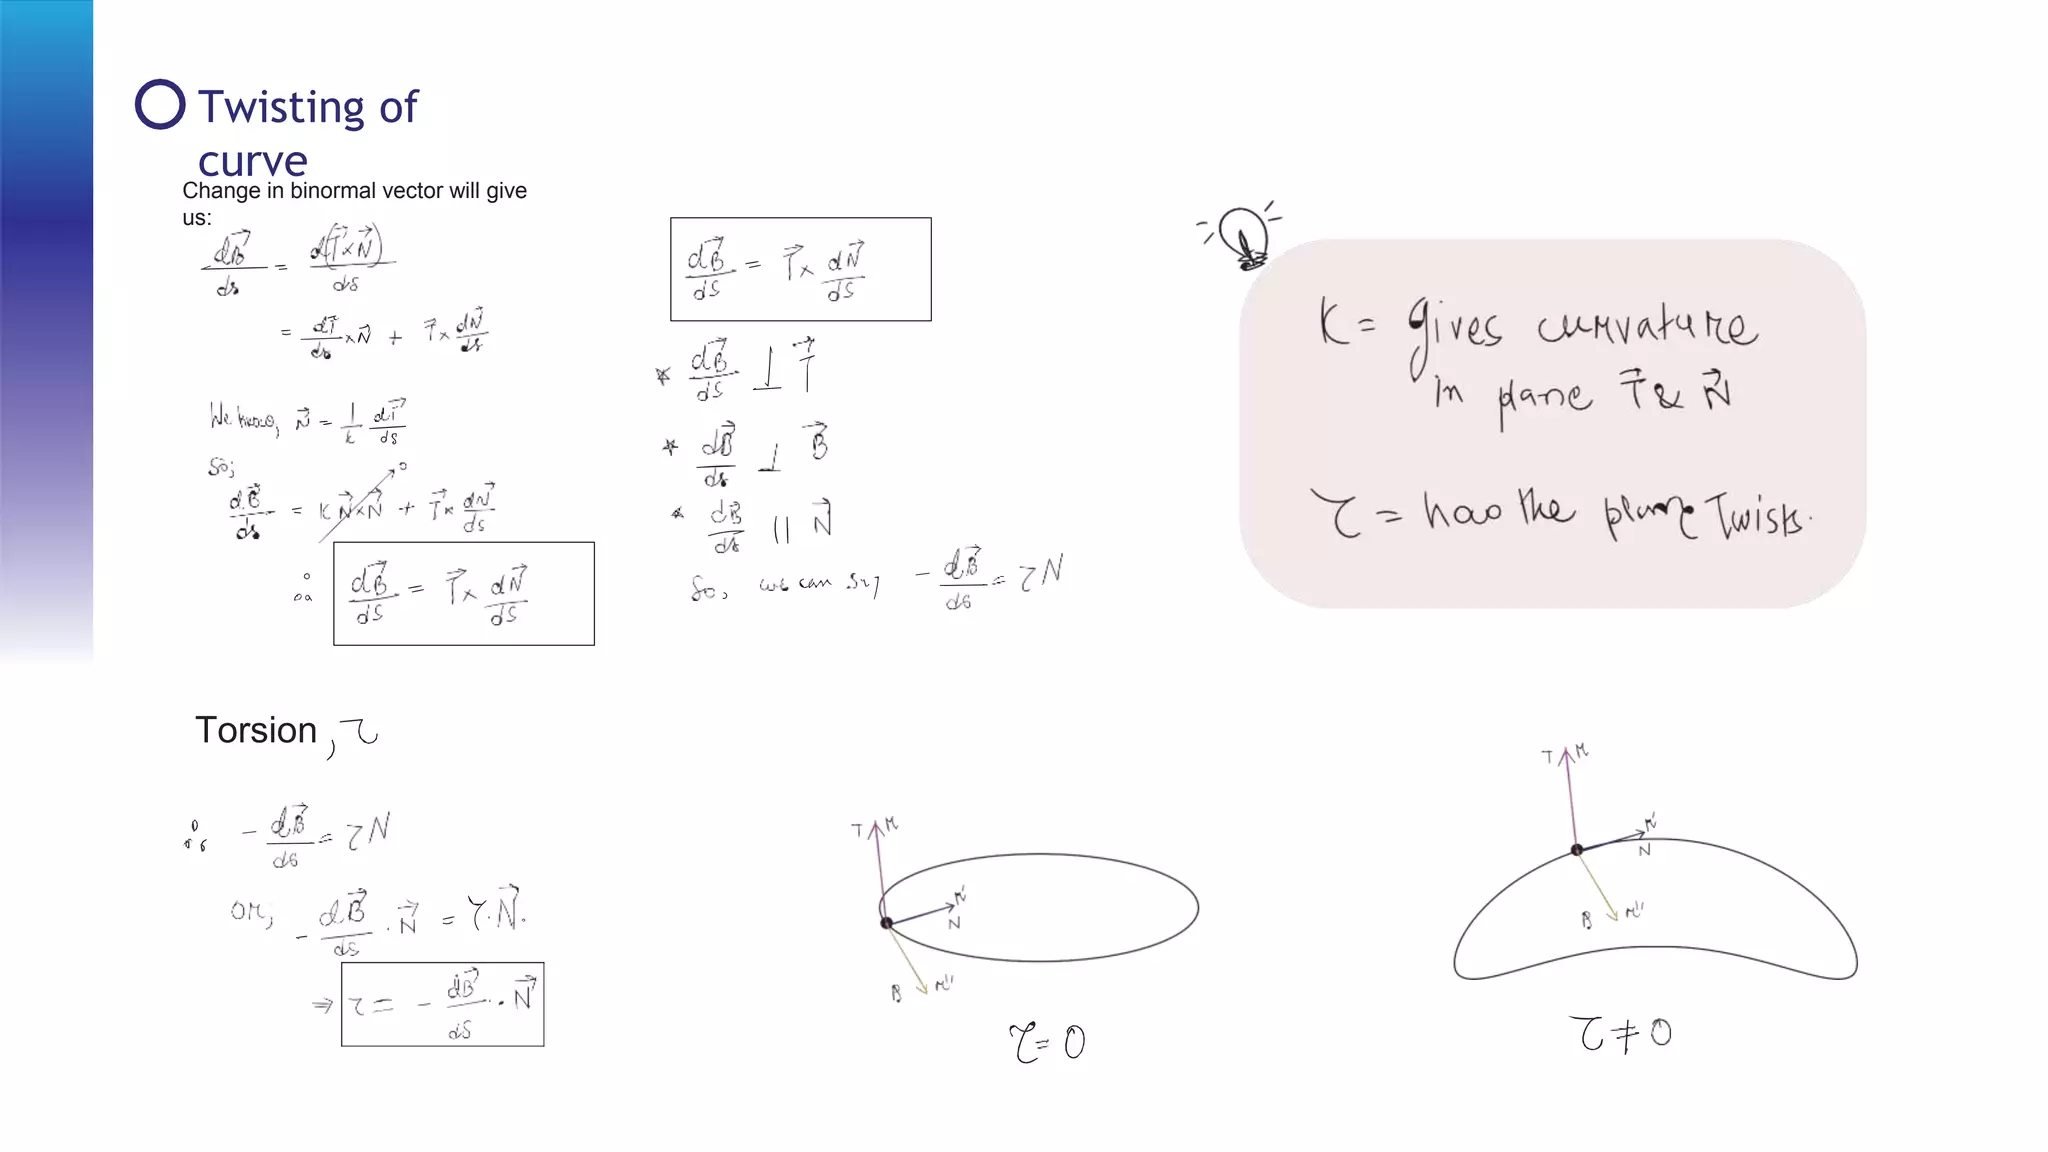 Twisting of
curve
Change in binormal vector will give
us:
dB⃗/ds = d(T⃗×N⃗)/ds
= dT⃗/ds ×N⃗ + T⃗× dN⃗/ds
We know, N⃗ = 1/k dT⃗/ds
So;
dB⃗/ds = K N⃗×N⃗ + T⃗× dN⃗/ds
0
∴ dB⃗/ds = T⃗× dN⃗/ds
dB⃗/ds = T⃗× dN⃗/ds
* dB⃗/ds ⊥ T⃗
* dB⃗/ds ⊥ B⃗
* dB⃗/ds || N⃗
So, we can say - dB⃗/ds = τN
K = gives curvature
in plane T⃗ & N⃗
τ = how the plane Twists.
Torsion, τ
∴ - dB⃗/ds = τN
or; - dB⃗/ds · N⃗ = τ·N⃗.
⇒ τ = - dB⃗/ds · N⃗
T r
r'
N
B r''
τ = 0
T r
r'
N
B r''
τ ≠ 0